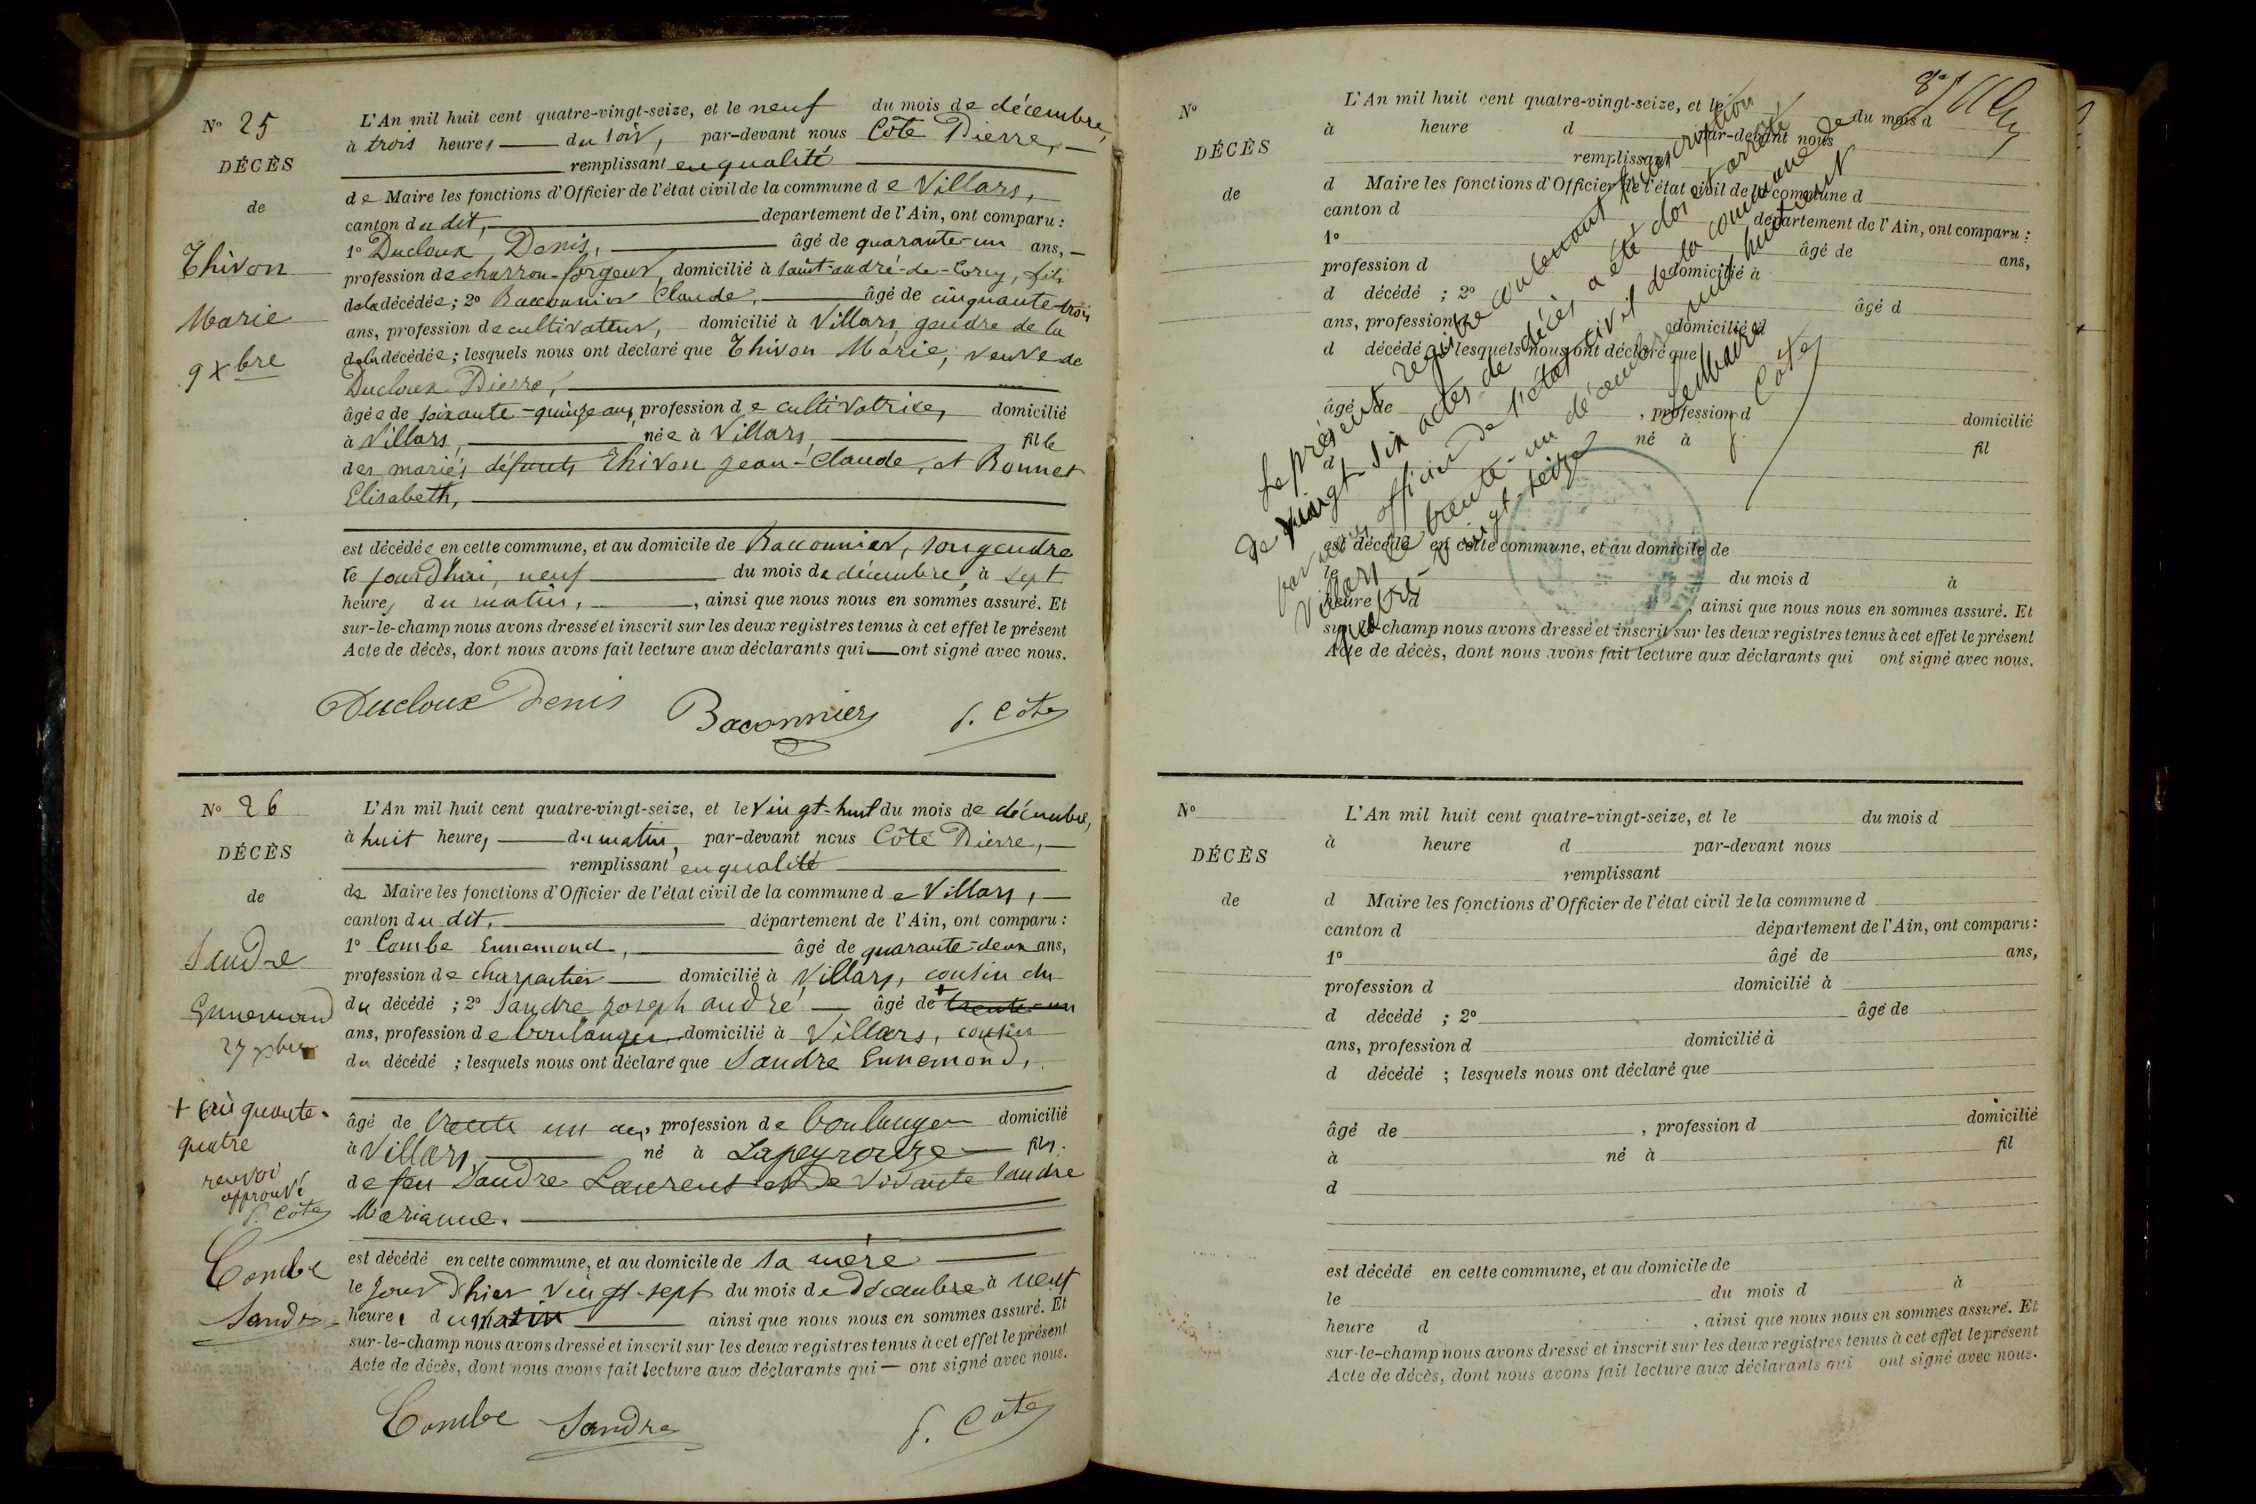 N° 25
DÉCÈS
de
Thivon
Marie
9 Xbre
L'An mil huit cent quatre-vingt-seize, et le neuf du mois de décembre,
à trois heures du soir, par-devant nous Côte Pierre,
remplissant en qualité
de Maire les fonctions d'Officier de l'état civil de la commune de Villars,
canton du dit, département de l'Ain, ont comparu :
1° Ducloux Denis, âgé de quarante-un ans,
profession de charron-forgeur, domicilié à Saint-andré-de-Corcy, fils
de la décédée ; 2° Baconnier Claude, âgé de cinquante-trois
ans, profession de cultivateur, domicilié à Villars, gendre de la
de la décédée ; lesquels nous ont déclaré que Thivon Marie, veuve de
Ducloux Pierre,
âgée de soixante-quinze ans, profession de cultivatrice, domicilié
à Villars, née à Villars, fille
des mariés défunts Thivon Jean-Claude, et Bonnet
Elisabeth,
est décédée en cette commune, et au domicile de Baconnier, son gendre
le jourd'hui, neuf du mois de décembre, à sept
heures du matin, , ainsi que nous nous en sommes assuré. Et
sur-le-champ nous avons dressé et inscrit sur les deux registres tenus à cet effet le présent
Acte de décès, dont nous avons fait lecture aux déclarants qui ont signé avec nous.
Ducloux Denis Baconnier P. Côte
N° 26
DÉCÈS
de
Sandre
Ennemond
27 Xbre
+ cinquante-
quatre
renvoi
approuvé
P. Côte
Combe
Sandre
L'An mil huit cent quatre-vingt-seize, et le vingt-huit du mois de décembre,
à huit heures du matin, par-devant nous Côte Pierre,
remplissant en qualité
de Maire les fonctions d'Officier de l'état civil de la commune de Villars,
canton du dit, département de l'Ain, ont comparu :
1° Combe Ennemond, âgé de quarante-deux ans,
profession de charpentier domicilié à Villars, cousin du
du décédé ; 2° Sandre Joseph andré âgé de + trente-un
ans, profession de boulanger domicilié à Villars, cousin
du décédé ; lesquels nous ont déclaré que Sandre Ennemond,
âgé de trente un ans, profession de boulanger domicilié
à Villars, né à Lapeyrouze fils
de feu Sandre Laurent et de vivante Sandre
Marianne.
est décédé en cette commune, et au domicile de sa mère
le jour d'hier vingt-sept du mois de Décembre à neuf
heures du matin ainsi que nous nous en sommes assuré. Et
sur-le-champ nous avons dressé et inscrit sur les deux registres tenus à cet effet le présent
Acte de décès, dont nous avons fait lecture aux déclarants qui — ont signé avec nous.
Combe Sandre P. Côte
N°
DÉCÈS
de
L'An mil huit cent quatre-vingt-seize, et le du mois d
à heure d par-devant nous
remplissant
d Maire les fonctions d'Officier de l'état civil de la commune d
canton d département de l'Ain, ont comparu :
1° âgé de ans,
profession d domicilié à
d décédé ; 2° âgé d
ans, profession d domicilié à
d décédé ; lesquels nous ont déclaré que
âgé de , profession d domicilié
né à fil
d
est décédé en cette commune, et au domicile de
le du mois d à
heure d , ainsi que nous nous en sommes assuré. Et
sur-le-champ nous avons dressé et inscrit sur les deux registres tenus à cet effet le présent
Acte de décès, dont nous avons fait lecture aux déclarants qui ont signé avec nous.
Le présent registre contenant l'inscription
de vingt-six actes de décès a été clos et arrêté
par nous officier de l'état civil de la commune de
Villars le trente-un décembre mil huit cent
quatre-vingt-seize
Le Maire
P. Côte
N°
DÉCÈS
de
L'An mil huit cent quatre-vingt-seize, et le du mois d
à heure d par-devant nous
remplissant
d Maire les fonctions d'Officier de l'état civil de la commune d
canton d département de l'Ain, ont comparu :
1° âgé de ans,
profession d domicilié à
d décédé ; 2° âgé de
ans, profession d domicilié à
d décédé ; lesquels nous ont déclaré que
âgé de , profession d domicilié
à né à fil
d
est décédé en cette commune, et au domicile de
le du mois d à
heure d , ainsi que nous nous en sommes assuré. Et
sur-le-champ nous avons dressé et inscrit sur les deux registres tenus à cet effet le présent
Acte de décès, dont nous avons fait lecture aux déclarants qui ont signé avec nous.